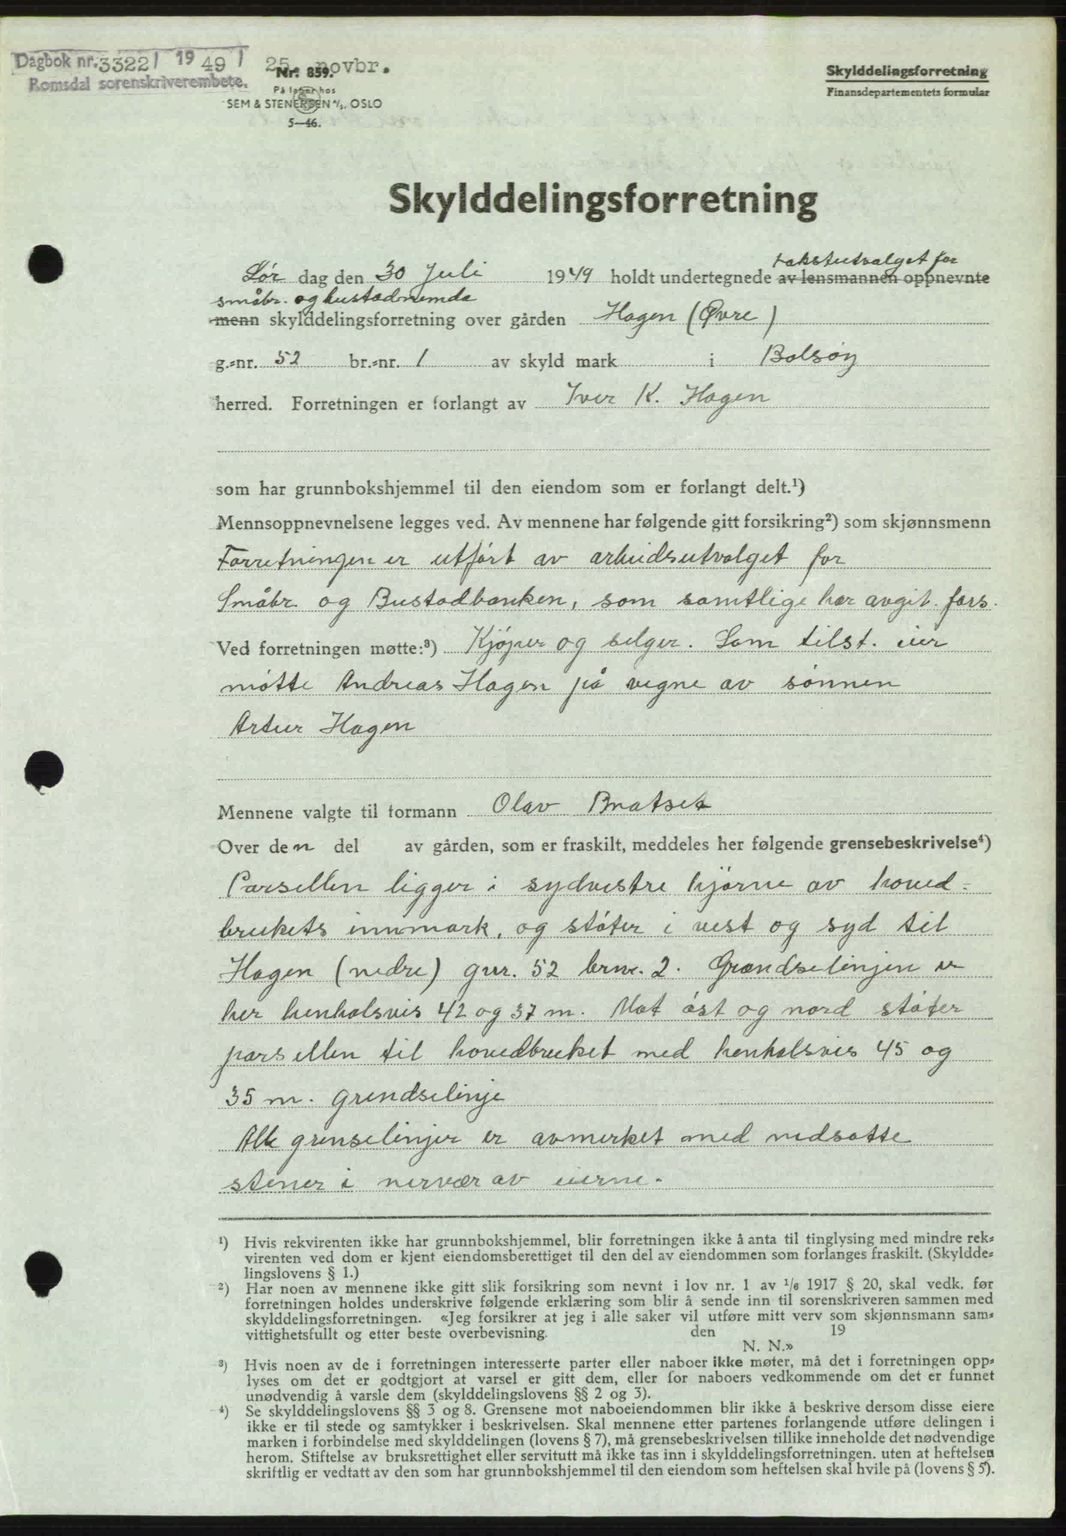 Dagbok nr. 3322 / 1949 / 25. novbr.
Romsdal sorenskriverembete.
Nr. 859.
På lager hos
SEM & STENERSEN A/S. OSLO
5—46.
Skylddelingsforretning
Finansdepartementets formular
Skylddelingsforretning
takstutvalget for
Lør dag den 30 Juli 1949 holdt undertegnede av lensmannen oppnevnte
småbr. og bustadnemda
menn skylddelingsforretning over gården Hagen (Øvre)
g.=nr. 52 br.=nr. 1 av skyld mark i Bolsøy
herred. Forretningen er forlangt av Iver K. Hagen
som har grunnbokshjemmel til den eiendom som er forlangt delt.¹)
Mennsoppnevnelsene legges ved. Av mennene har følgende gitt forsikring²) som skjønnsmenn
Forretningen er utført av arbeidsutvalget for
Småbr og Bustadbanken, som samtlige har avgit fors.
Ved forretningen møtte:³) Kjøper og selger. Som tilst. eier
møtte Andreas Hagen på vegne av sønnen
Artur Hagen
Mennene valgte til formann Olav Bratset
Over den del av gården, som er fraskilt, meddeles her følgende grensebeskrivelse⁴)
Parsellen ligger i sydvestre hjørne av hoved=
brukets innmark, og støter i vest og syd til
Hagen (nedre) gnr. 52 brnr. 2. Grændselinjen er
her henholsvis 42 og 37 m. Mot øst og nord støter
parsellen til hovedbruket med henholsvis 45 og
35 m. grendselinje
Alle grenselinjer er avmerket med nedsatte
stener i nervær av eierne.
¹) Hvis rekvirenten ikke har grunnbokshjemmel, blir forretningen ikke å anta til tinglysing med mindre rek=
virenten ved dom er kjent eiendomsberettiget til den del av eiendommen som forlanges fraskilt. (Skyldde=
lingslovens § 1.)
²) Har noen av mennene ikke gitt slik forsikring som nevnt i lov nr. 1 av 1/6 1917 § 20, skal vedk. før
forretningen holdes underskrive følgende erklæring som blir å sende inn til sorenskriveren sammen med
skylddelingsforretningen. «Jeg forsikrer at jeg i alle saker vil utføre mitt verv som skjønnsmann sam=
vittighetsfullt og etter beste overbevisning. den 19
N. N.»
³) Hvis noen av de i forretningen interesserte parter eller naboer ikke møter, må det i forretningen opp=
lyses om det er godtgjort at varsel er gitt dem, eller for naboers vedkommende om det er funnet
unødvendig å varsle dem (skylddelingslovens §§ 2 og 3).
⁴) Se skylddelingslovens §§ 3 og 8. Grensene mot naboeiendommen blir ikke å beskrive dersom disse eiere
ikke er til stede og samtykker i beskrivelsen. Skal mennene etter partenes forlangende utføre delingen i
marken i forbindelse med skylddelingen (lovens § 7), må grensebeskrivelsen tillike inneholde det nødvendige
herom. Stiftelse av bruksrettighet eller servitutt må ikke tas inn i skylddelingsforretningen. uten at heftelsen
skriftlig er vedtatt av den som har grunnbokshjemmel til den eiendom som heftelsen skal hvile på (lovens § 5).